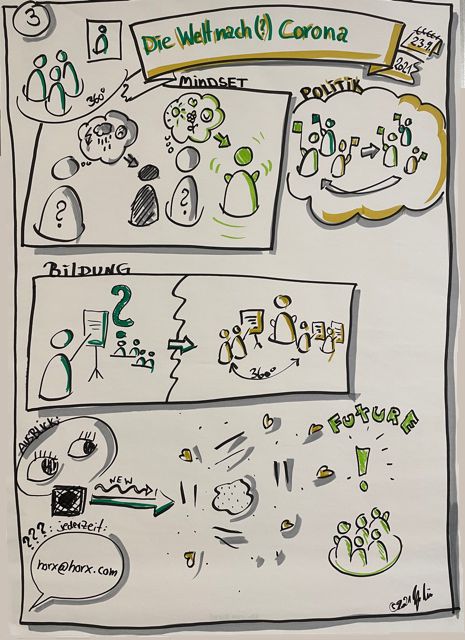 3
Die Welt nach (?) Corona
23.9.
2021
360°
MINDSET
POLITIK
?
?
BILDUNG
?
360°
AUSBLICK:
FUTURE
!
NEW
???: jederzeit:
horx@horx.com